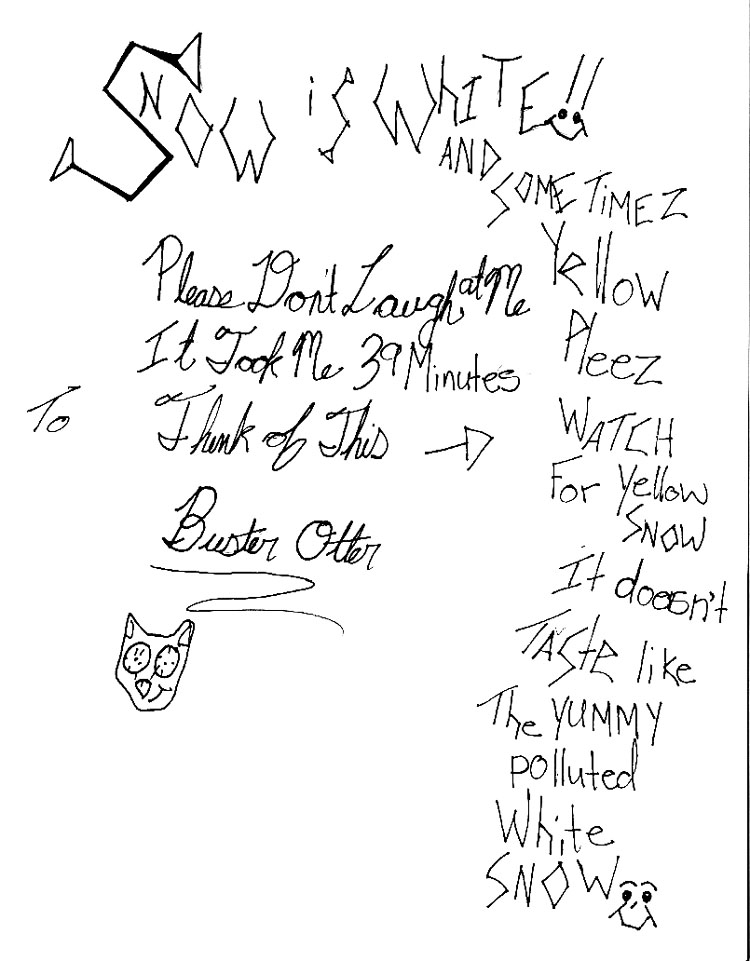 SNOW iS WhITE!!
AND
SOMETiMEZ
Yellow
Pleez
WATCH
For Yellow
SNOW
It doesn't
TASte like
The YUMMY
polluted
White
SNOW
Please Don't Laugh at Me
It Took Me 39 Minutes
To Think of This
Buster Otter